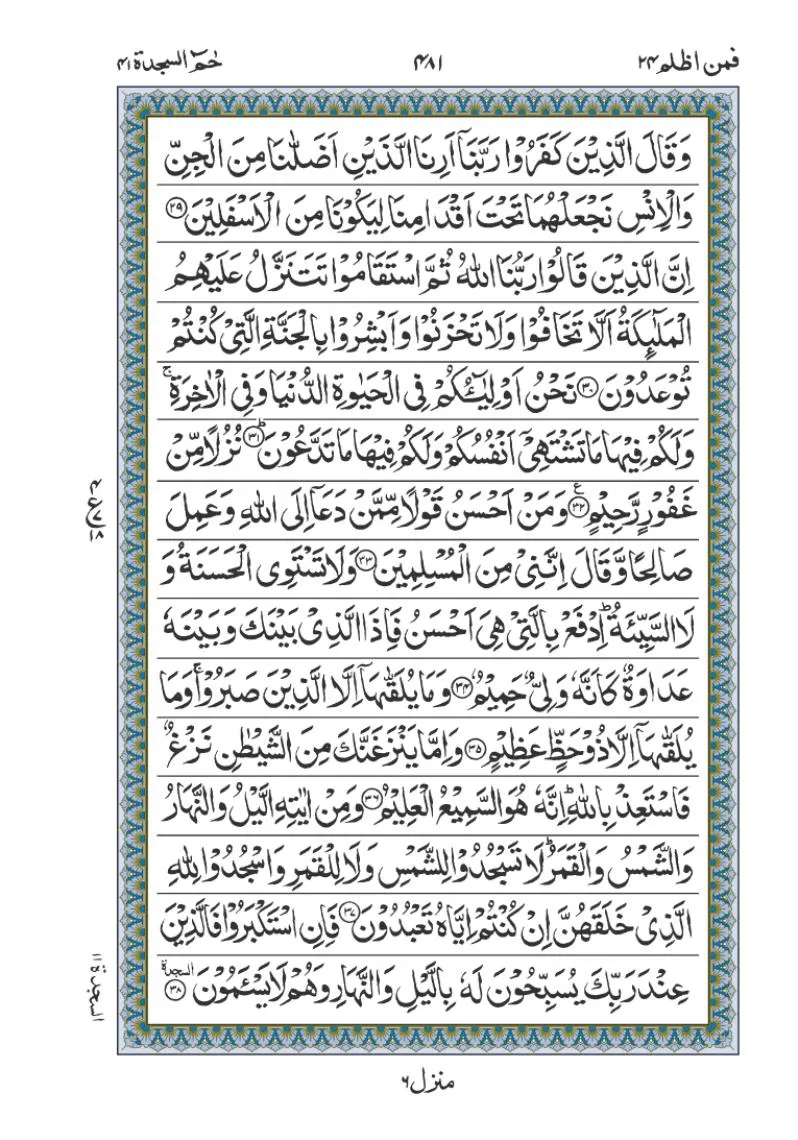 فمن اظلم ۲۴
۴۸۱
حٰمٓ السجدة ۴۱
وَقَالَ الَّذِيْنَ كَفَرُوْا رَبَّنَاۤ اَرِنَا الَّذَيْنِ اَضَلّٰنَا مِنَ الْجِنِّ
وَالْاِنْسِ نَجْعَلْهُمَا تَحْتَ اَقْدَامِنَا لِيَكُوْنَا مِنَ الْاَسْفَلِيْنَ ﴿۲۹﴾
اِنَّ الَّذِيْنَ قَالُوْا رَبُّنَا اللّٰهُ ثُمَّ اسْتَقَامُوْا تَتَنَزَّلُ عَلَيْهِمُ
الْمَلٰٓئِكَةُ اَلَّا تَخَافُوْا وَلَا تَحْزَنُوْا وَاَبْشِرُوْا بِالْجَنَّةِ الَّتِيْ كُنْتُمْ
تُوْعَدُوْنَ ﴿۳۰﴾ نَحْنُ اَوْلِيٰٓـُٔكُمْ فِي الْحَيٰوةِ الدُّنْيَا وَفِي الْاٰخِرَةِ ۚ
وَلَكُمْ فِيْهَا مَا تَشْتَهِيْۤ اَنْفُسُكُمْ وَلَكُمْ فِيْهَا مَا تَدَّعُوْنَ ؕ﴿۳۱﴾ نُزُلًا مِّنْ
غَفُوْرٍ رَّحِيْمٍ ﴿۳۲﴾ ع وَمَنْ اَحْسَنُ قَوْلًا مِّمَّنْ دَعَاۤ اِلَى اللّٰهِ وَعَمِلَ
صَالِحًا وَّقَالَ اِنَّنِيْ مِنَ الْمُسْلِمِيْنَ ﴿۳۳﴾ وَلَا تَسْتَوِي الْحَسَنَةُ وَ
لَا السَّيِّئَةُ ؕ اِدْفَعْ بِالَّتِيْ هِيَ اَحْسَنُ فَاِذَا الَّذِيْ بَيْنَكَ وَبَيْنَهٗ
عَدَاوَةٌ كَاَنَّهٗ وَلِيٌّ حَمِيْمٌ ﴿۳۴﴾ وَمَا يُلَقّٰىهَاۤ اِلَّا الَّذِيْنَ صَبَرُوْا ۚ وَمَا
يُلَقّٰىهَاۤ اِلَّا ذُوْ حَظٍّ عَظِيْمٍ ﴿۳۵﴾ وَاِمَّا يَنْزَغَنَّكَ مِنَ الشَّيْطٰنِ نَزْغٌ
فَاسْتَعِذْ بِاللّٰهِ ؕ اِنَّهٗ هُوَ السَّمِيْعُ الْعَلِيْمُ ﴿۳۶﴾ وَمِنْ اٰيٰتِهِ الَّيْلُ وَالنَّهَارُ
وَالشَّمْسُ وَالْقَمَرُ ؕ لَا تَسْجُدُوْا لِلشَّمْسِ وَلَا لِلْقَمَرِ وَاسْجُدُوْا لِلّٰهِ
الَّذِيْ خَلَقَهُنَّ اِنْ كُنْتُمْ اِيَّاهُ تَعْبُدُوْنَ ﴿۳۷﴾ فَاِنِ اسْتَكْبَرُوْا فَالَّذِيْنَ
عِنْدَ رَبِّكَ يُسَبِّحُوْنَ لَهٗ بِالَّيْلِ وَالنَّهَارِ وَهُمْ لَا يَسْئَمُوْنَ ﴿۳۸﴾ السجدة
السجدة ۱۱
منزل ۶